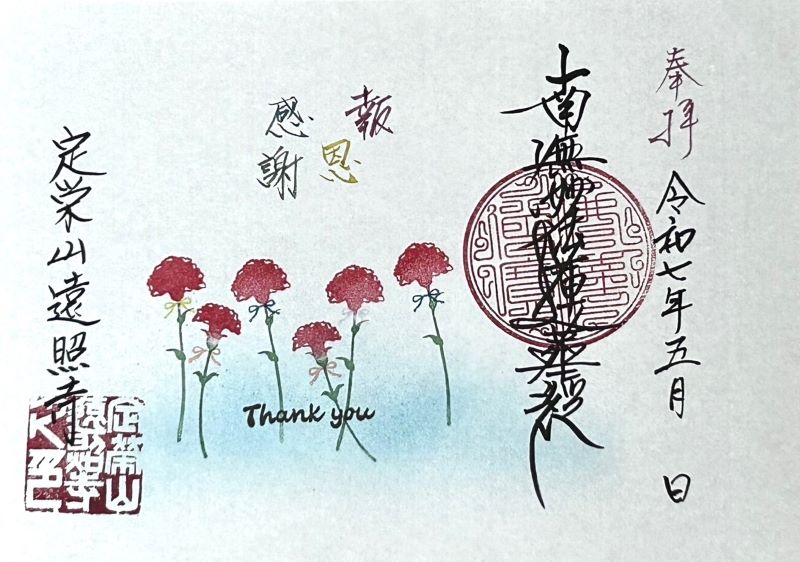 奉拝
令和七年五月 日
南無妙法蓮華経
報恩
感謝
Thank you
定栄山遠照寺